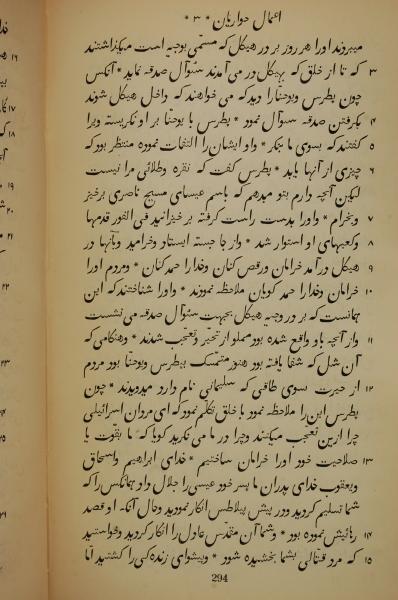 اعمال حواریان * ۳ *
میبردند اورا هر روز بر در هیکل که مسمّی بوجیه است میگذاشتند
۳ که تا از خلق که بهیکل در می آمدند سئوال صدقه نماید * آنکس
چون پطرس ویوحنارا دید که می خواهند که داخل هیکل شوند
۴ بگرفتن صدقه سئوال نمود * پطرس با یوحنا بر او نگریسته ویرا
۵ گفتند که بسوی ما بنگر * واو ایشان را التفات نموده منتظر بود که
۶ چیزی از آنها یابد * پطرس گفت که نقره وطلائی مرا نیست
لیکن آنچه دارم بتو میدهم که باسم عیسای مسیح ناصری برخیز
۷ وبخرام * واورا بدست راست گرفته برخیزانید فی الفور قدمها
۸ وکعبهای او استوار شد * واز جا جسته ایستاد وخرامید وبآنها در
۹ هیکل در آمد خرامان ورقص کنان وخدارا حمد کنان * ومردم اورا
۱۰ خرامان وخدا را حمد کویان ملاحظه نمودند * واورا شناختند که این
همانست که بر در وجیه هیکل بجهت سئوال صدقه می نشست
۱۱ واز آنچه باو واقع شده بود مملو از تحیّر وتعجب شدند * وهنکامی که
آن شل که شفا یافته بود هنوز متمسک بپطرس ویوحنا بود مردم
۱۲ از حیرت بسوی طاقی که سلیمانی نام دارد میدویدند * چون
پطرس این را ملاحظه نمود با خلق تکلّم نمود که ای مردان اسرائیلی
چرا ازین تعجب میکنند وچرا در ما می نکرید کویا که ما بقوّت یا
۱۳ صلاحیت خود اورا خرامان ساختیم * خدای ابراهیم واسحاق
ویعقوب خدای پدران ما پسر خود عیسی را جلال داد همانکس را که
شما تسلیم کردید ودر پیش پیلاطس انکار نمودید وحال آنکه او قصد
۱۴ رهائیش نموده بود * وشما آن مقدّس عادل را انکار کردید وخواستید
۱۵ که مرد قتالی بشما بخشیده شود * وپیشوای زنده کی را کشتید امّا
294